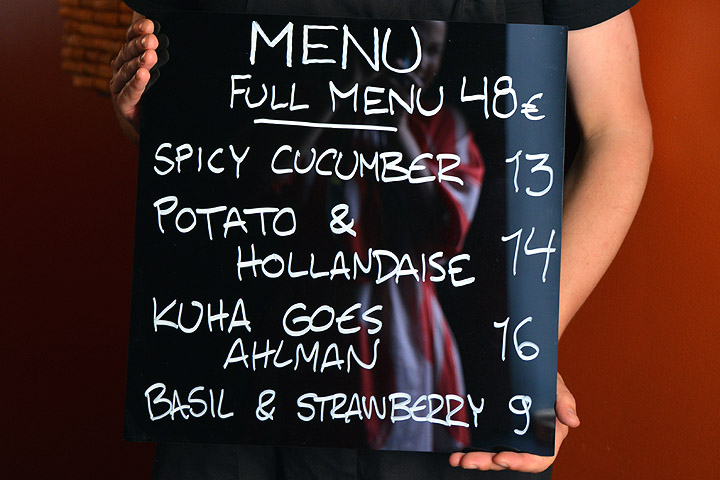 MENU
FULL MENU 48€
SPICY CUCUMBER 13
POTATO &
HOLLANDAISE 14
KUHA GOES
AHLMAN 16
BASIL & STRAWBERRY 9